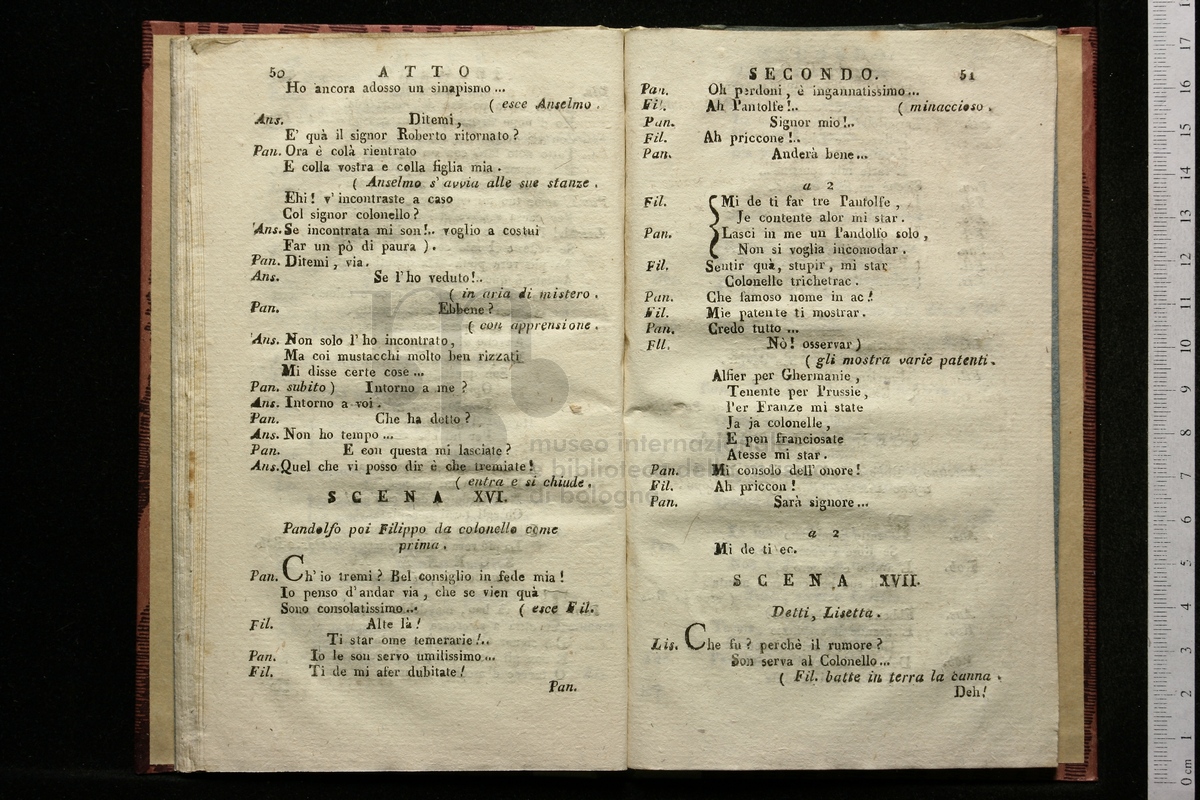 50 ATTO
Ho ancora adosso un sinapismo ...
( esce Anselmo .
Ans. Ditemi,
E' quà il signor Roberto ritornato ?
Pan. Ora è colà rientrato
E colla vostra e colla figlia mia .
( Anselmo s' avvia alle sue stanze .
Ehi ! v' incontraste a caso
Col signor colonello ?
Ans. Se incontrata mi son !.. voglio a costui
Far un pò di paura ) .
Pan. Ditemi , via .
Ans. Se l' ho veduto !..
( in aria di mistero .
Pan. Ebbene ?
( con apprensione .
Ans. Non solo l' ho incontrato ,
Ma coi mustacchi molto ben rizzati
Mi disse certe cose ...
Pan. subito ) Intorno a me ?
Ans. Intorno a voi .
Pan. Che ha detto ?
Ans. Non ho tempo ...
Pan. E con questa mi lasciate ?
Ans. Quel che vi posso dir è che tremiate !
( entra e si chiude .
SCENA XVI.
Pandolfo poi Filippo da colonello come
prima .
Pan. Ch' io tremi ? Bel consiglio in fede mia !
Io penso d' andar via , che se vien quà
Sono consolatissimo ... ( esce Fil.
Fil. Alte là !
Ti star ome temerarie !..
Pan. Io le son servo umilissimo ...
Fil. Ti de mi afer dubitate !
Pan.
SECONDO. 51
Pan. Oh perdoni , è ingannatissimo ...
Fil. Ah Pantolfe !.. ( minaccioso .
Pan. Signor mio !..
Fil. Ah priccone !..
Pan. Anderà bene ...
a 2
Fil. Mi de ti far tre Pantolfe ,
Je contente alor mi star .
Pan. Lasci in me un Pandolfo solo ,
Non si voglia incomodar .
Fil. Sentir quà, stupir , mi star
Colonelle trichetrac .
Pan. Che famoso nome in ac !
Fil. Mie patente ti mostrar .
Pan. Credo tutto ...
Fil. Nò ! osservar )
( gli mostra varie patenti .
Alfier per Ghermanie ,
Tenente per Prussie ,
Per Franze mi state
Ja ja colonelle ,
E pen franciosate
Atesse mi star .
Pan. Mi consolo dell' onore !
Fil. Ah priccon !
Pan. Sarà signore ...
a 2
Mi de ti ec.
SCENA XVII.
Detti, Lisetta .
Lis. Che fu ? perchè il rumore ?
Son serva al Colonello ...
( Fil. batte in terra la canna .
Deh!
museo internazionale
e biblioteca della
di bologna
0 cm 1 2 3 4 5 6 7 8 9 10 11 12 13 14 15 16 17